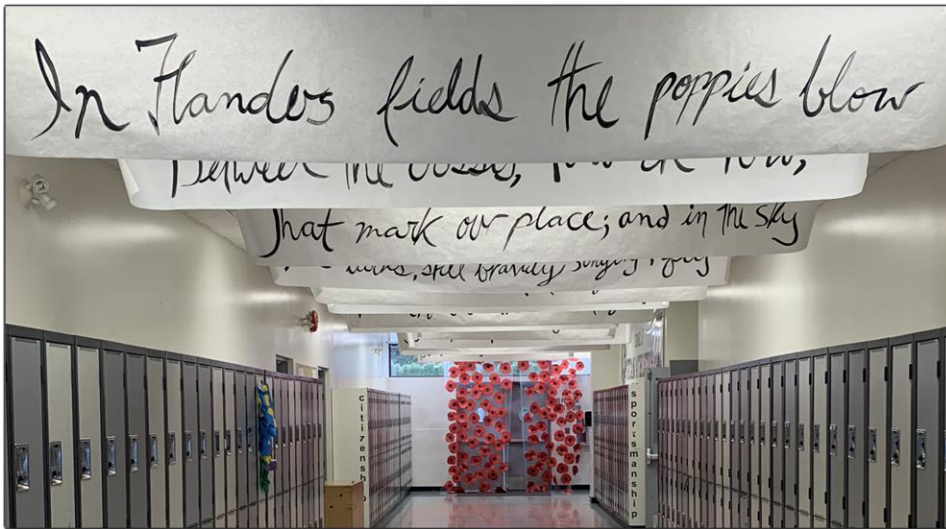 In Flanders fields the poppies blow
Between the crosses, row on row,
That mark our place; and in the sky
larks, still bravely singing, fly
citizenship
sportsmanship